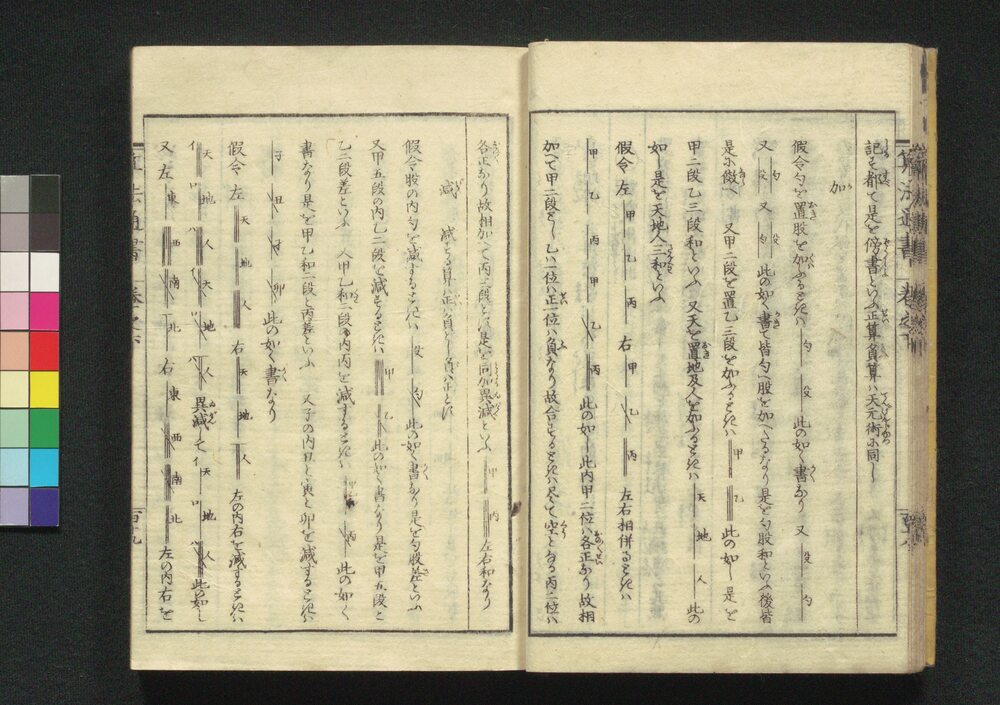 記も都て是を傍書といふ正算負算ハ天元術に同し
加
假令勾を置股を加ふるときハ 勾 股 此の如く書なり 又 股 勾
又 股 勾 又 勾 股 此の如く書て皆勾へ股を加へたるなり是を勾股和といふ後皆
是に傚へ 又甲二段を置乙三段を加ふるときハ 甲 乙 此の如し是を
甲二段乙三段和といふ 又天を置地及人を加ふるときハ 天 地 人 此の
如し是を天地人三和といふ
假令左 甲 乙 丙 右 甲 乙 丙 左右相併るときハ
甲 乙 丙 甲 乙 丙 此の如し此内甲二位ハ各正なり故相
加へて甲二段とし乙ハ一位ハ正一位ハ負なり故合するときハ尽て空となる丙二位ハ
各正なり故相加へて丙二段とす是を同加異減といふ 甲 丙 左右和なり
減 減る算ハ正ハ負とし負ハ正とす
假令股の内勾を減するときハ 股 勾 此の如く書なり是を勾股差といふ
又甲五段の内乙二段を減するときハ 甲 乙 此の如く書なり是を甲五段と
乙二段差といふ 又甲乙和二段の内丙を減するときハ 甲 乙 丙 此の如く
書なり是を甲乙和二段と丙差といふ 又子の内丑と寅と卯を減するときハ
子 丑 寅 卯 此の如く書なり
假令左 天 地 人 右 天 地 人 左の内右を減するときハ
天 地 人 天 地 人 異減して 天 地 人 此の如し
又左 東 西 南 北 右 東 西 南 北 左の内右を
算法通書 巻之